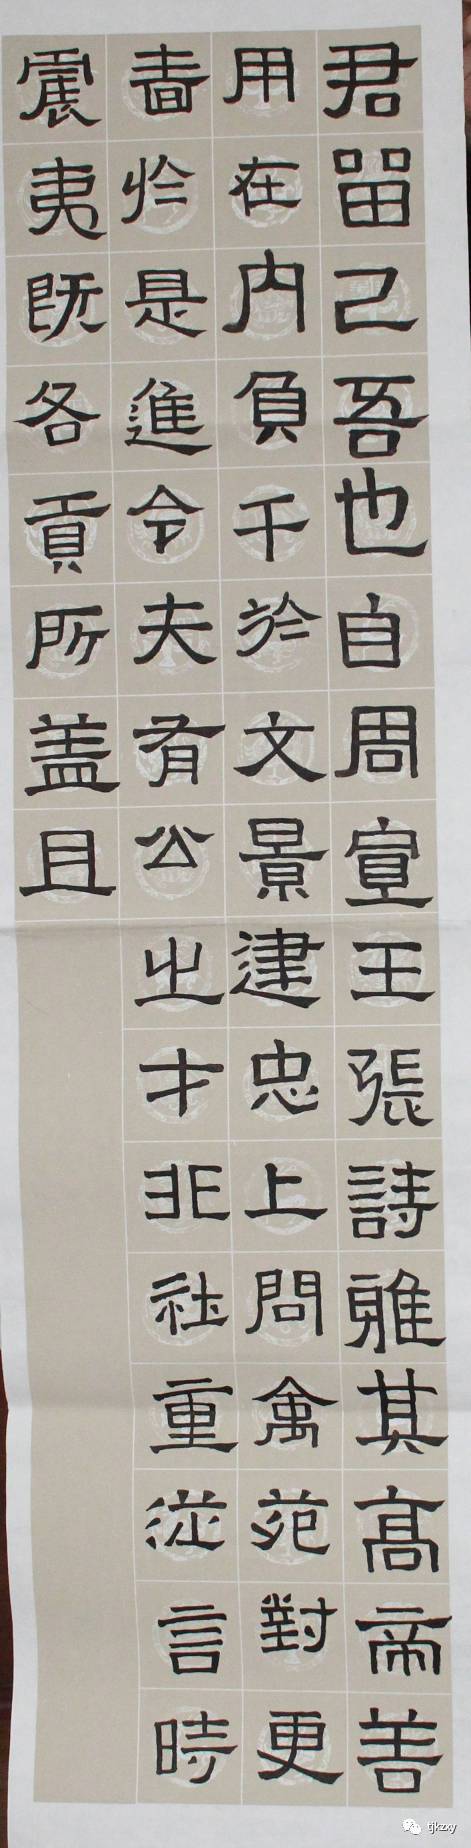 君留己吾也自周宣王張詩雅其高帝善
用在内負千於文景建忠上問禽苑對更
嗇於是進令夫有公之才非社重從言時
震夷既各貢所盖且
tjkzxy